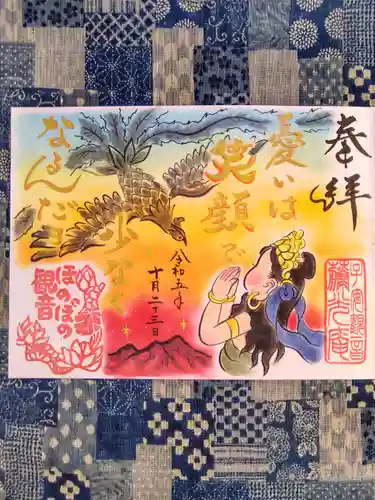 奉拝
憂いは
笑顔で
少なく
なるんだよ
令和五年
十月二十三日
ほのぼの
観音
子安観音